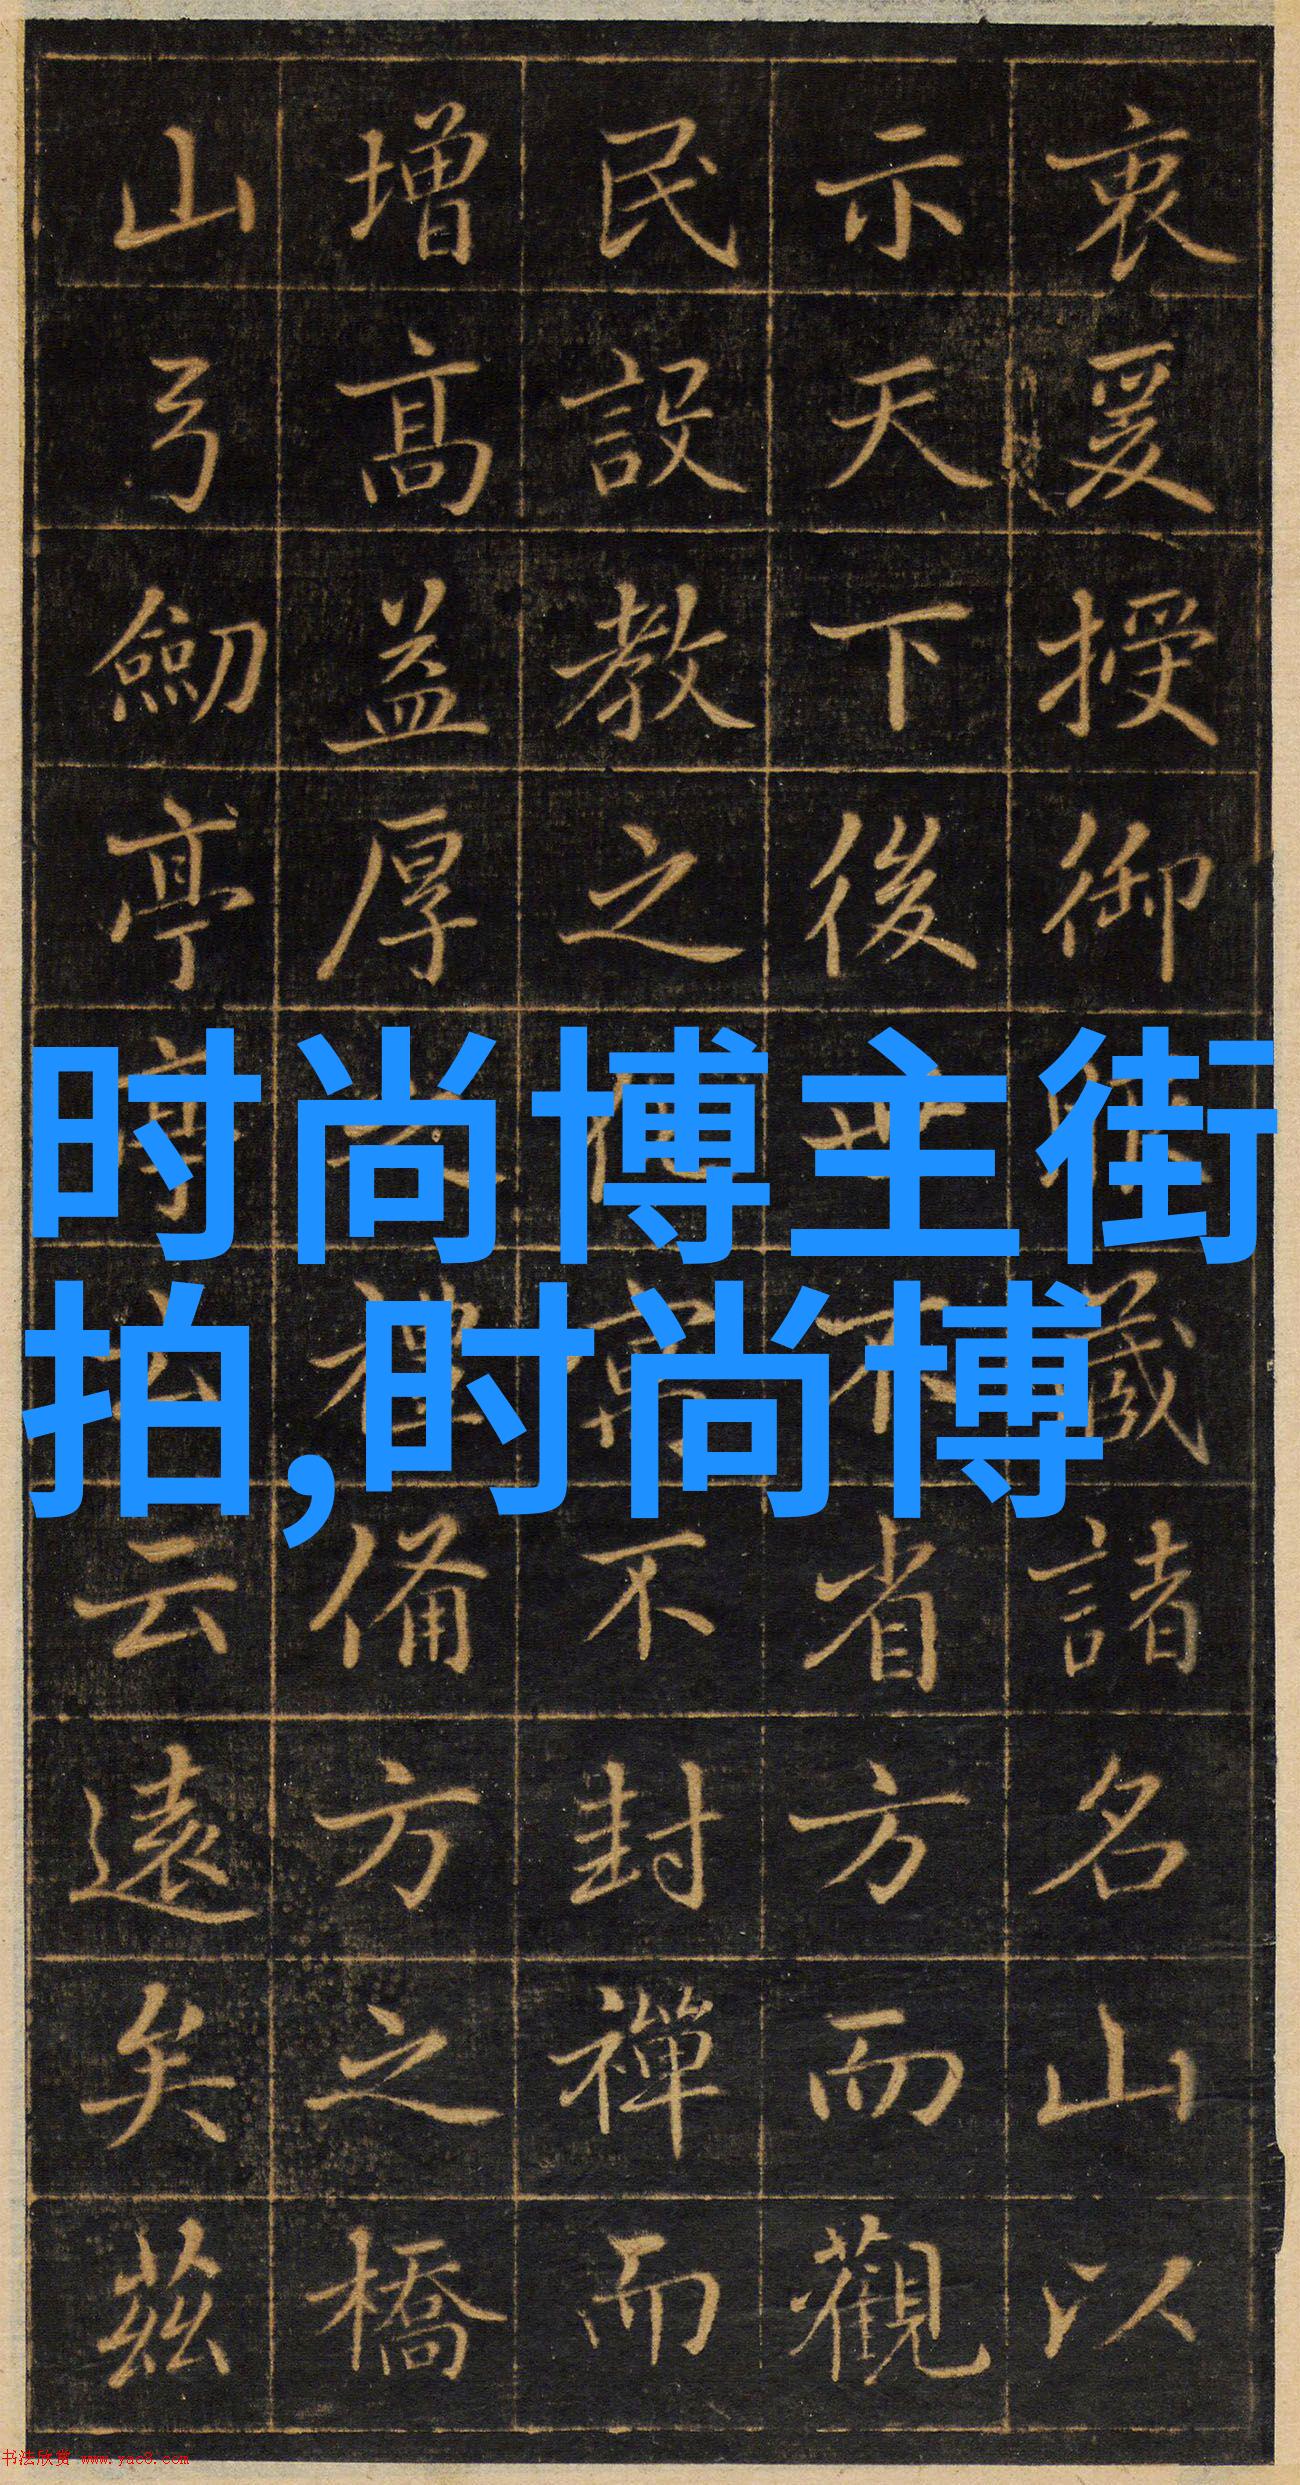 衷爰授御藏諸名山以
示天下後世不省方而觀
民設教之不封禪而
增高益厚之禮備方之橋
山弓劒亭亭云云遠矣茲
时尚博主街
拍,时尚博
书法欣赏 www.yac8.com